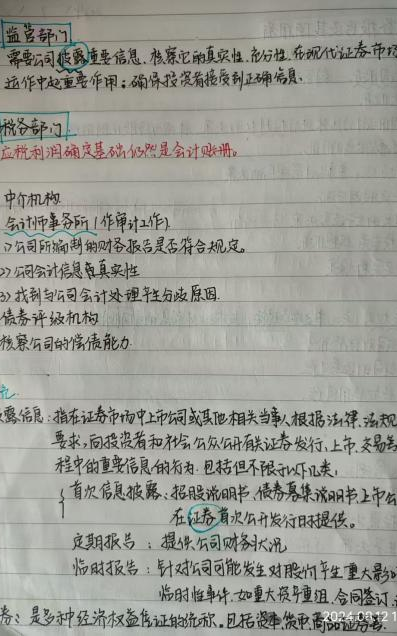 监管部门
需要公司披露重要信息,核察它的真实性,充分性,在现代证券市场
运作中起重要作用:确保投资者接受到正确信息。
税务部门
应税利润确定基础仍然是会计账册。
中介机构
会计师事务所(作审计工作)
1>公司所编制的财务报告是否符合规定。
2>公司会计信息真实性
3>找到与公司会计处理产生分歧原因.
债券评级机构
核察公司的偿债能力.
露信息:指在证券市场中上市公司或其他相关当事人根据法律、法规
要求,向投资者和社会公众公开有关证券发行、上市、交易等
程中的重要信息的行为.包括但不限于以下几类:
首次信息披露:招股说明书、债券募集说明书上市公
在证券首次公开发行时提供。
定期报告:提供公司财务状况
临时报告:针对公司可能发生对股价产生重大影
临时性事件.如重大资产重组,合同签订
券:是多种经济权益凭证的统称.包括资本货币商品证券等.
2024.09.12 1